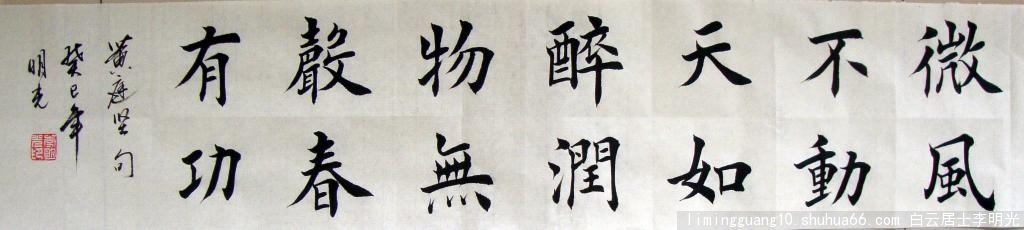 微風
不動
天如
醉潤
物無
聲春
有功
黄庭坚句
癸巳年
明光
limingguang10.shuhua66.com 白云居士李明光